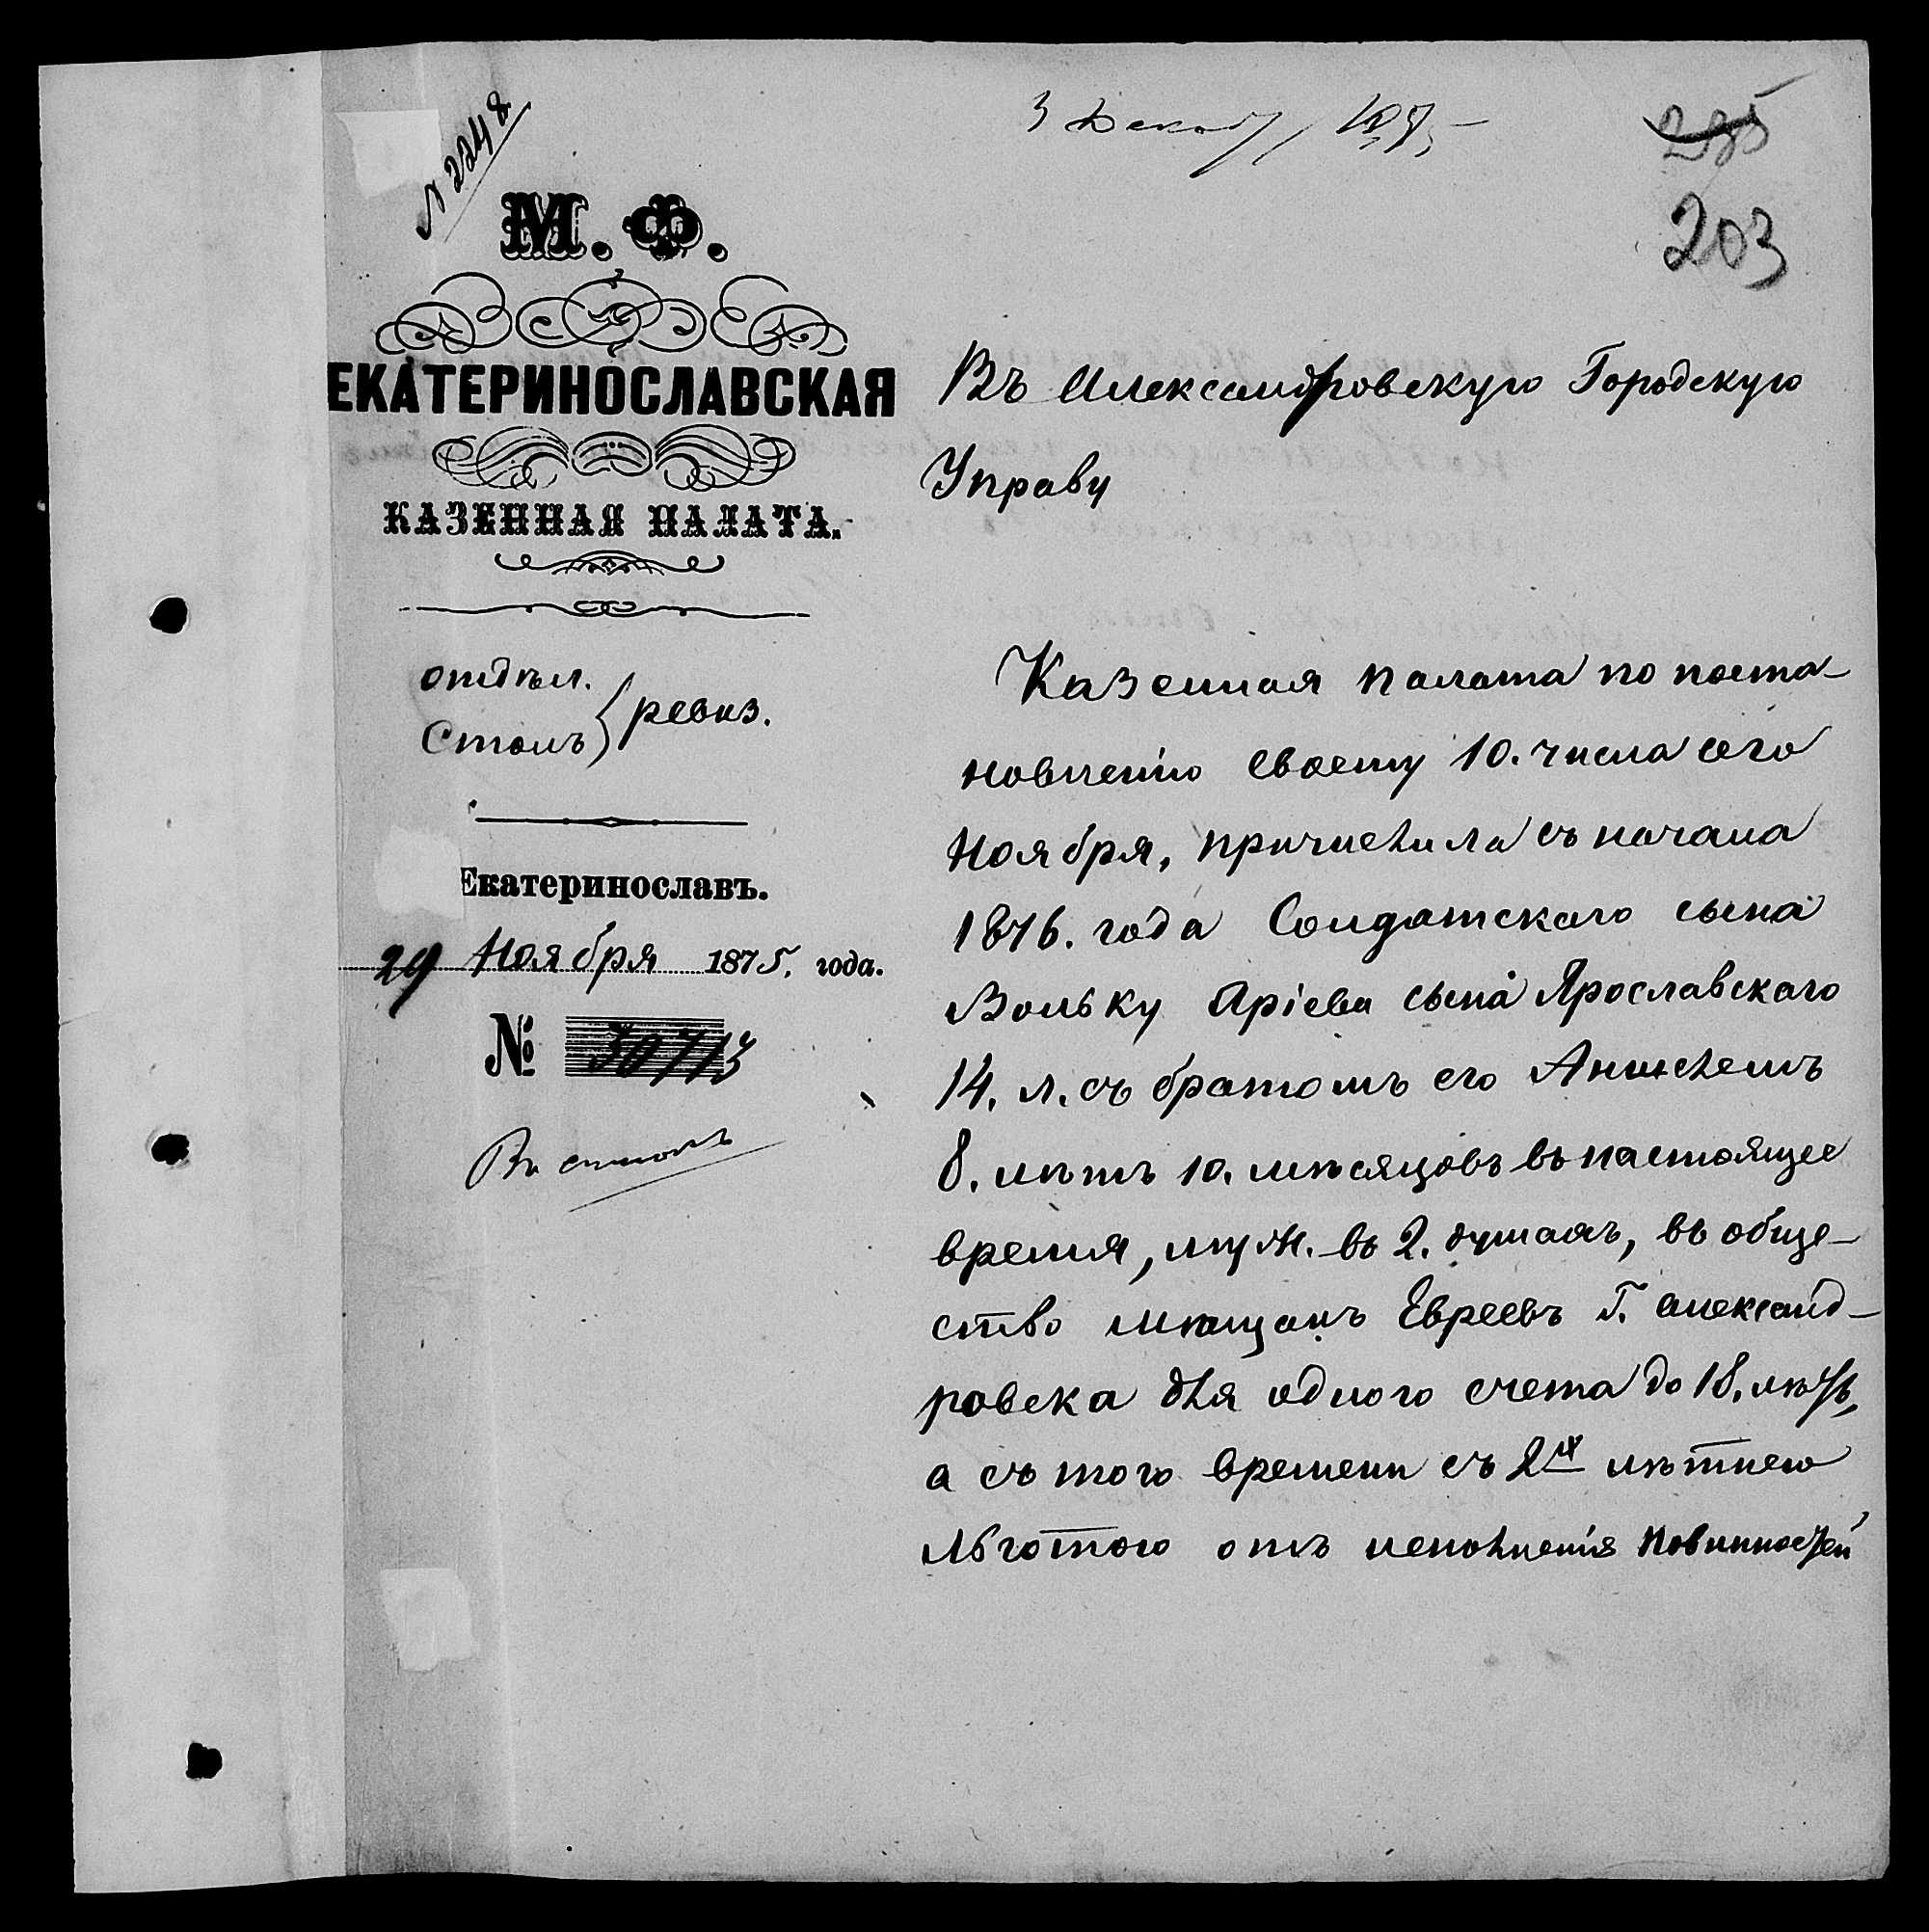 N 2248
3 Декаб 1875
235
203
М. Ф.
ЕКАТЕРИНОСЛАВСКАЯ
КАЗЕННАЯ ПАЛАТА.
отдѣл.
Столъ } ревиз.
Екатеринославъ.
29 Ноября 1875. года.
№ 30713
Въ Александровскую Городскую
Управу
Казенная палата по поста-
новленію своему 10. числа сего
Ноября, причислила съ начала
1876. года Солдатского сына
Вольку Аріева сына Ярославского
14. л. съ братомъ его
8. лѣтъ 10. мѣсяцовъ въ настоящее
время, муж. въ 2. душахъ, въ обще-
ство мѣщанъ Евреевъ Г. Александ-
ровска для одного счета до 18. лѣтъ,
а съ того времени съ 2х лѣтнею
льготою отъ исполненія повинностей